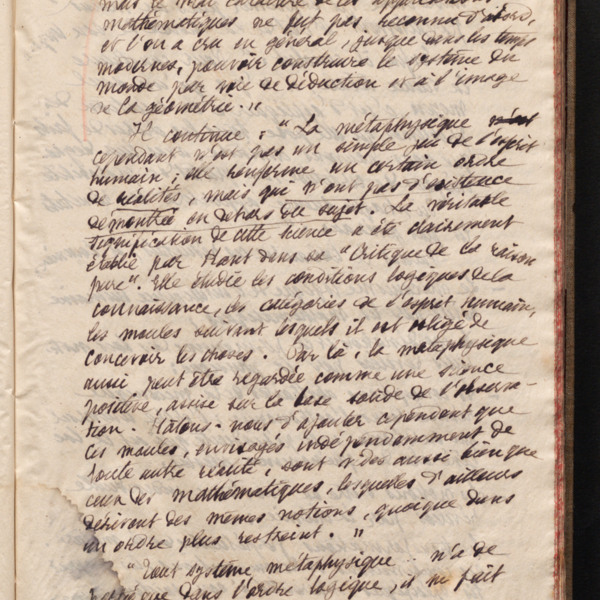 mais le vrai caractère de ces
mathématiques ne fut pas reconnu d'abord,
et l'on a cru en général, jusque dans les temps
modernes, pouvoir construire le système du
monde par voie de déduction et à l'image
de la géométrie."
Il continue : "La métaphysique
cependant n'est pas un simple jeu de l'esprit
humain ; elle renferme un certain ordre
de réalités, mais qui n'ont pas d'existence
démontrée en dehors du sujet. La véritable
signification de cette science a été clairement
établie par Kant dans sa "Critique de la raison
pure". Elle étudie les conditions logiques de la
connaissance, les catégories de l'esprit humain,
les moules suivant lesquels il est obligé de
concevoir les choses. Par là, la métaphysique
aussi peut être regardée comme une science
positive, assise sur la base solide de l'observa-
tion. Hâtons-nous d'ajouter cependant que
ces moules, envisagés indépendamment de
toute autre réalité, sont vides aussi bien que
ceux des mathématiques, lesquelles d'ailleurs
dérivent des mêmes notions, quoique dans
un ordre plus restreint."
"Tout système métaphysique .. n'a de
dans l'ordre logique, il ne fait